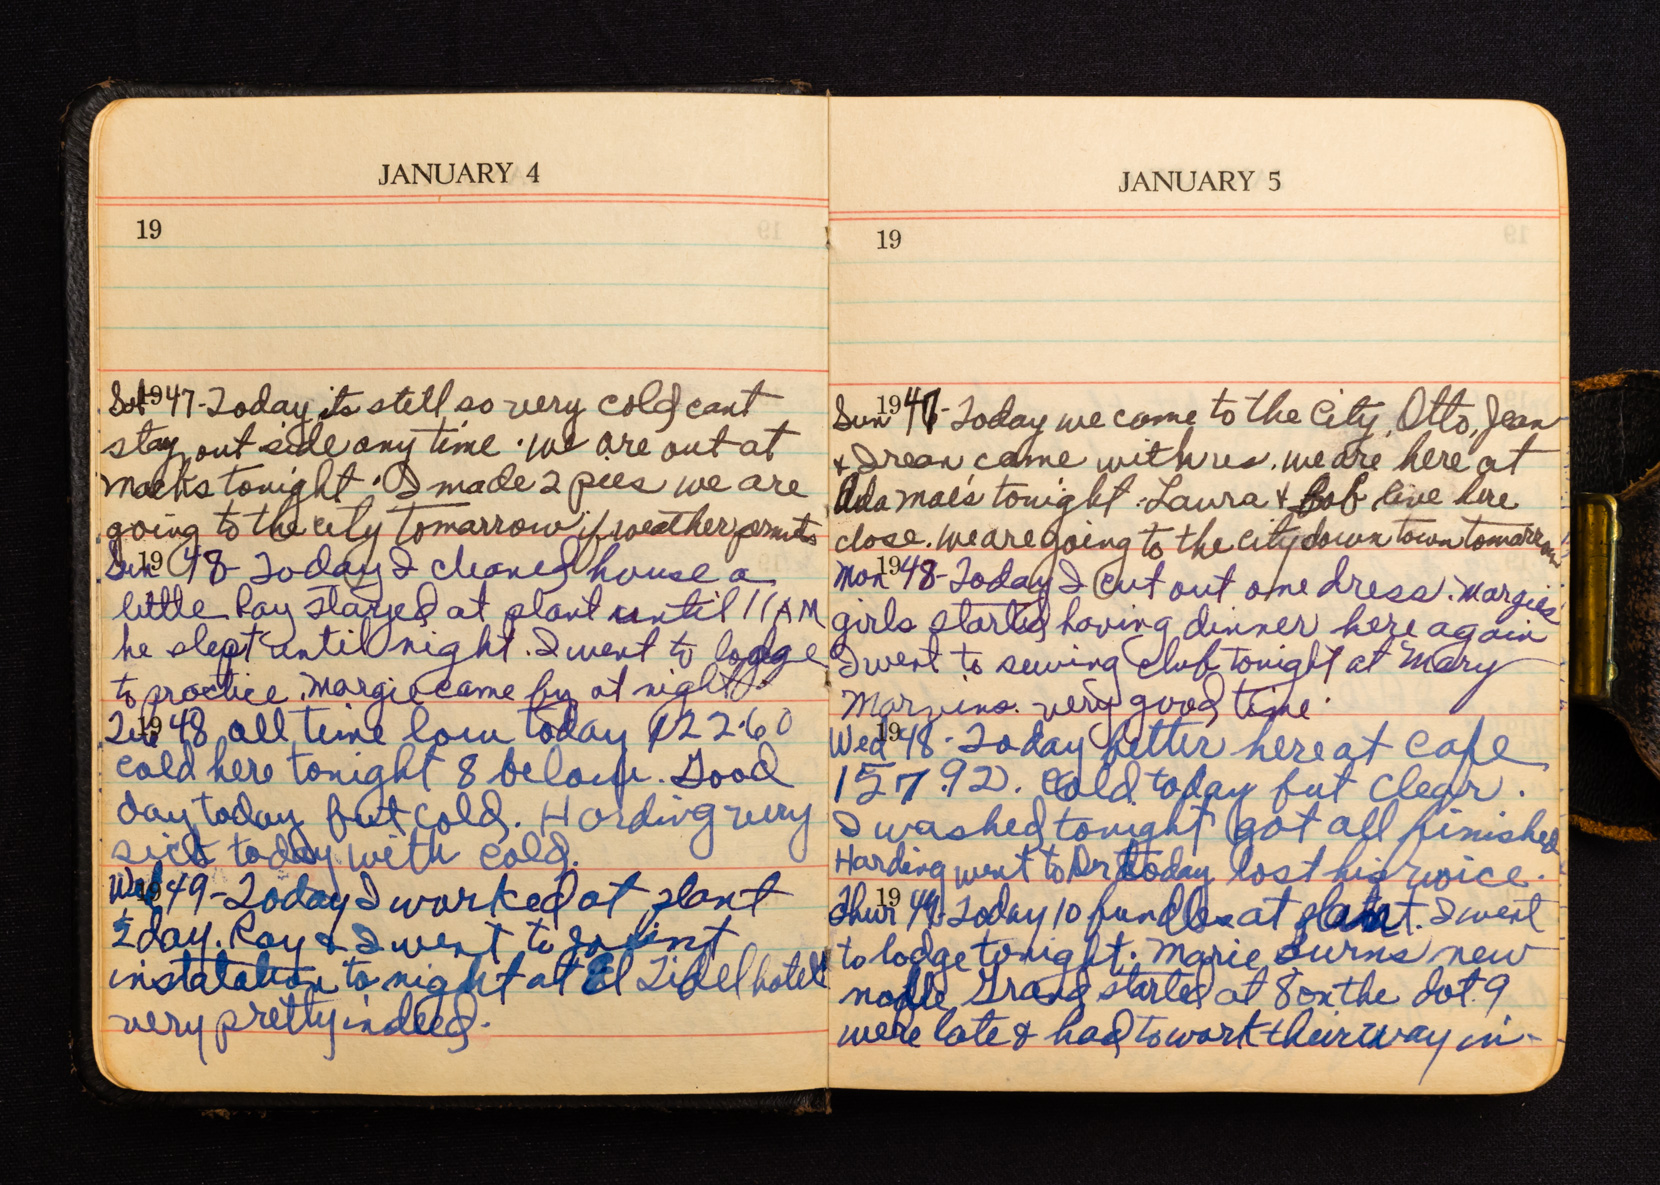 JANUARY 4
19
Sat 1947-Today its still so very cold cant
stay out side any time. we are out at
Macks tonight. I made 2 pies we are
going to the city tomarrow if weather permits
Sun 1948- Today I cleaned house a
little Ray stayed at plant until 11 AM
he slept until night. I went to lodge
to practice. Margie came by at night.
Tue 1948 all time low today 122.60
cold here tonight 8 below. Good
day today but cold. Harding very
sick today with cold.
Wed 49-Today I worked at plant
½ day. Ray & I went to joint
instalation to night at El Tidel hotel
very pretty indeed.
JANUARY 5
19
Sun 1947- Today we came to the City, Otto, Jean
& came with us. we are here at
Ada Mae's tonight. Laura & Bob live here
close. we are going to the city down town tomarrow
Mon 1948-Today I cut out one dress. Margies
girls started having dinner here again
I went to sewing club tonight at Mary
Marvins. very good time.
Wed 1948- Today better here at Cafe
157.92. Cold today but clear.
I washed tonight got all finished
Harding went to Dr today lost his voice.
Thur 1949-Today 10 bundles at plant. I went
to lodge tonight. Marie Burns new
noble Grand started at 8 on the dot. 9
were late & had to work their way in-